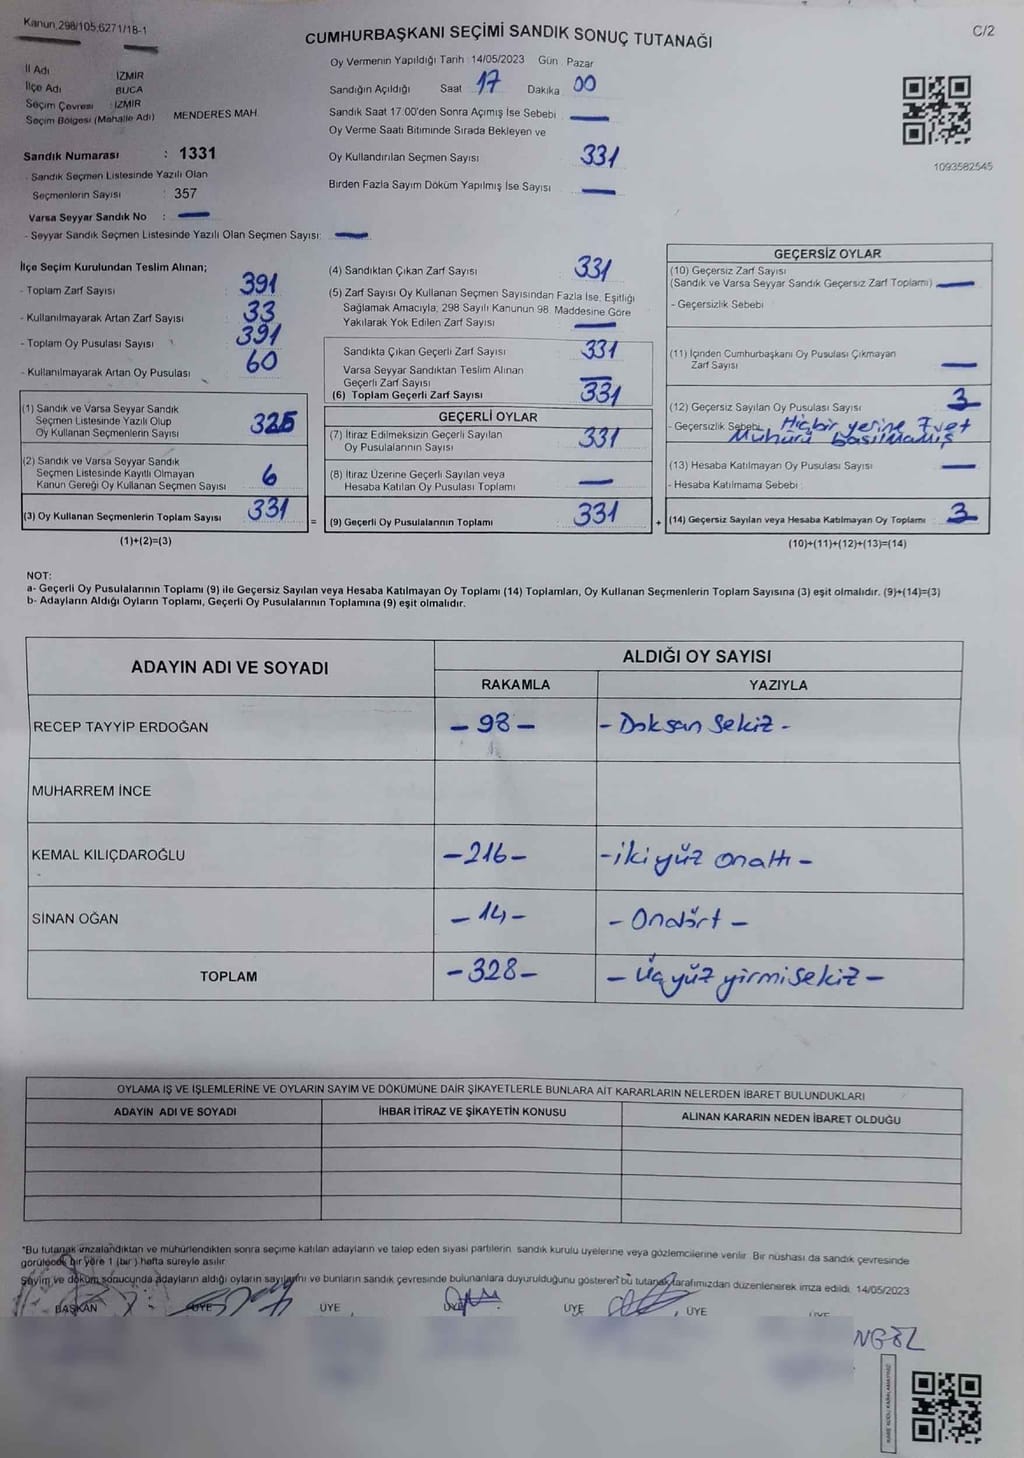 Kanun.298/105,6271/18-1
C/2
CUMHURBAŞKANI SEÇİMİ SANDIK SONUÇ TUTANAĞI
İl Adı İZMİR
İlçe Adı BUCA
Seçim Çevresi : İZMİR
Seçim Bölgesi (Mahalle Adı) MENDERES MAH
Sandık Numarası : 1331
Sandık Seçmen Listesinde Yazılı Olan
Seçmenlerin Sayısı : 357
Varsa Seyyar Sandık No : —
- Seyyar Sandık Seçmen Listesinde Yazılı Olan Seçmen Sayısı: —
Oy Vermenin Yapıldığı Tarih 14/05/2023 Gün Pazar
Sandığın Açıldığı Saat 17 Dakika 00
Sandık Saat 17:00'den Sonra Açımış İse Sebebi —
Oy Verme Saati Bitiminde Sırada Bekleyen ve
Oy Kullandırılan Seçmen Sayısı 331
Birden Fazla Sayım Döküm Yapılmış İse Sayısı —
1093582545
İlçe Seçim Kurulundan Teslim Alınan;
- Toplam Zarf Sayısı 391
- Kullanılmayarak Artan Zarf Sayısı 33
- Toplam Oy Pusulası Sayısı 391
- Kullanılmayarak Artan Oy Pusulası 60
(1) Sandık ve Varsa Seyyar Sandık
Seçmen Listesinde Yazılı Olup
Oy Kullanan Seçmenlerin Sayısı 325
(2) Sandık ve Varsa Seyyar Sandık
Seçmen Listesinde Kayıtlı Olmayan
Kanun Gereği Oy Kullanan Seçmen Sayısı 6
(3) Oy Kullanan Seçmenlerin Toplam Sayısı 331
(1)+(2)=(3)
(4) Sandıktan Çıkan Zarf Sayısı 331
(5) Zarf Sayısı Oy Kullanan Seçmen Sayısından Fazla İse, Eşitliği
Sağlamak Amacıyla; 298 Sayılı Kanunun 98. Maddesine Göre
Yakılarak Yok Edilen Zarf Sayısı —
Sandıkta Çıkan Geçerli Zarf Sayısı 331
Varsa Seyyar Sandıktan Teslim Alınan
Geçerli Zarf Sayısı —
(6) Toplam Geçerli Zarf Sayısı 331
GEÇERLİ OYLAR
(7) İtiraz Edilmeksizin Geçerli Sayılan
Oy Pusulasının Sayısı 331
(8) İtiraz Üzerine Geçerli Sayılan veya
Hesaba Katılan Oy Pusulası Toplamı —
= (9) Geçerli Oy Pusulalarının Toplamı 331
GEÇERSİZ OYLAR
(10) Geçersiz Zarf Sayısı
(Sandık ve Varsa Seyyar Sandık Geçersiz Zarf Toplamı) —
- Geçersizlik Sebebi
(11) İçinden Cumhurbaşkanı Oy Pusulası Çıkmayan
Zarf Sayısı —
(12) Geçersiz Sayılan Oy Pusulası Sayısı 3
- Geçersizlik Sebebi Hiçbir yerine Evet
Mühürü basılmamış
(13) Hesaba Katılmayan Oy Pusulası Sayısı —
- Hesaba Katılmama Sebebi
+ (14) Geçersiz Sayılan veya Hesaba Katılmayan Oy Toplamı 3
(10)+(11)+(12)+(13)=(14)
NOT:
a- Geçerli Oy Pusulalarının Toplamı (9) ile Geçersiz Sayılan veya Hesaba Katılmayan Oy Toplamı (14) Toplamları, Oy Kullanan Seçmenlerin Toplam Sayısına (3) eşit olmalıdır. (9)+(14)=(3)
b- Adayların Aldığı Oyların Toplamı, Geçerli Oy Pusulalarının Toplamına (9) eşit olmalıdır.
ADAYIN ADI VE SOYADI ALDIĞI OY SAYISI
RAKAMLA YAZIYLA
RECEP TAYYİP ERDOĞAN – 98 – – Doksan Sekiz –
MUHARREM İNCE
KEMAL KILIÇDAROĞLU – 216 – – iki yüz onaltı –
SİNAN OĞAN – 14 – – Ondört –
TOPLAM – 328 – – Üçyüz yirmi sekiz –
OYLAMA İŞ VE İŞLEMLERİNE VE OYLARIN SAYIM VE DÖKÜMÜNE DAİR ŞİKAYETLERLE BUNLARA AİT KARARLARIN NELERDEN İBARET BULUNDUKLARI
ADAYIN ADI VE SOYADI İHBAR İTİRAZ VE ŞİKAYETİN KONUSU ALINAN KARARIN NEDEN İBARET OLDUĞU
*Bu tutanak imzalandıktan ve mühürlendikten sonra seçime katılan adayların ve talep eden siyasi partilerin sandık kurulu üyelerine veya gözlemcilerine verilir. Bir nüshası da sandık çevresinde
görülecek bir yere 1 (bir) hafta süreyle asılır
Sayım ve döküm sonucunda adayların aldığı oyların sayılarını ve bunların sandık çevresinde bulunanlara duyurulduğunu gösteren bu tutanak tarafımızdan düzenlenerek imza edildi. 14/05/2023
BAŞKAN ÜYE ÜYE ÜYE ÜYE ÜYE ÜYE
KARE KODU KARALAMAYINIZ